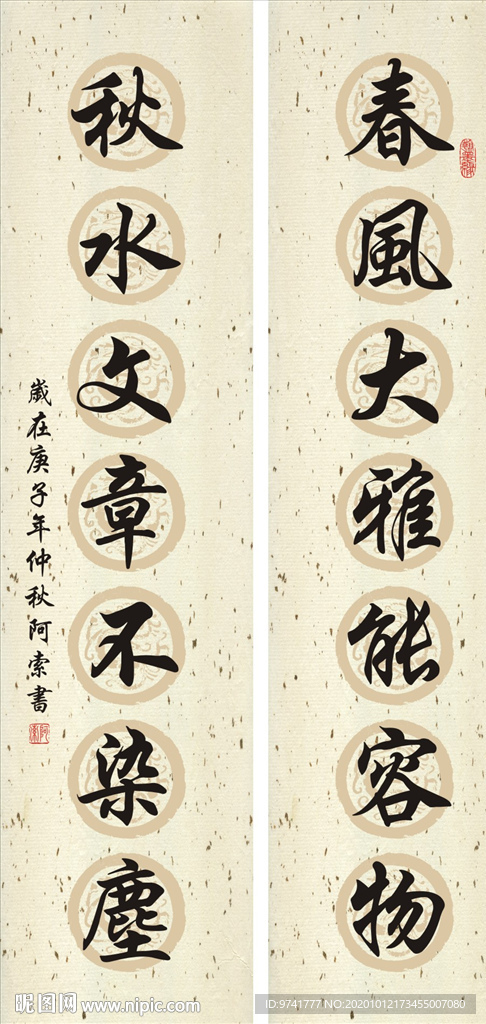 春風大雅能容物
秋水文章不染塵
歲在庚子年仲秋阿索書
昵图网 www.nipic.com
ID:9741777 NO:20201012173455007080